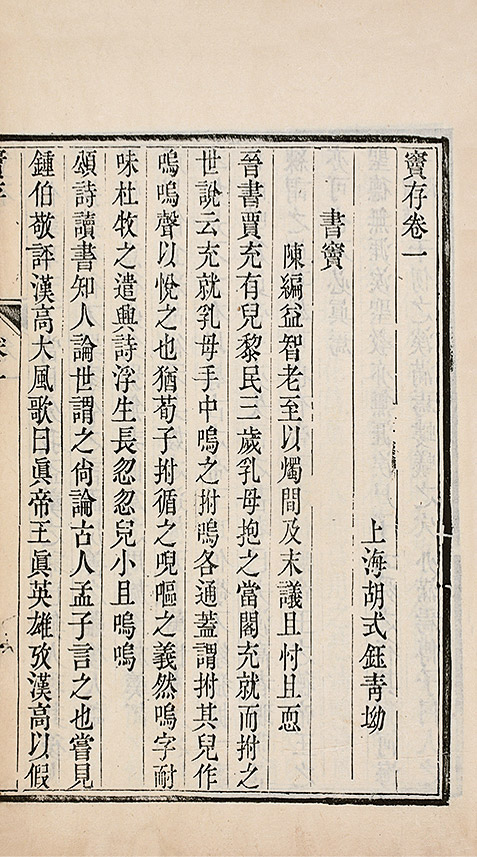 竇存卷一
上海胡式鈺青坳
書竇
陳編益智老至以燭間及末議且忖且恧
晉書賈充有兒黎民三歲乳母抱之當閣充就而拊之
世說云充就乳母手中嗚之拊嗚各通蓋謂拊其兒作
嗚嗚聲以悅之也猶荀子拊循之唲嘔之義然嗚字耐
味杜牧之遣興詩浮生長忽忽兒小且嗚嗚
頌詩讀書知人論世謂之尙論古人孟子言之也嘗見
鍾伯敬評漢高大風歌曰眞帝王眞英雄攷漢高以假